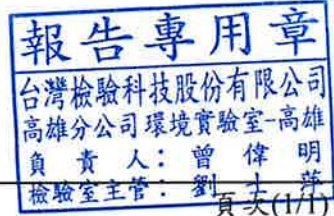 報告專用章
台灣檢驗科技股份有限公司
高雄分公司環境實驗室-高雄
負責人：曾偉明
檢驗室主管：劉士萍
頁次(1/1)